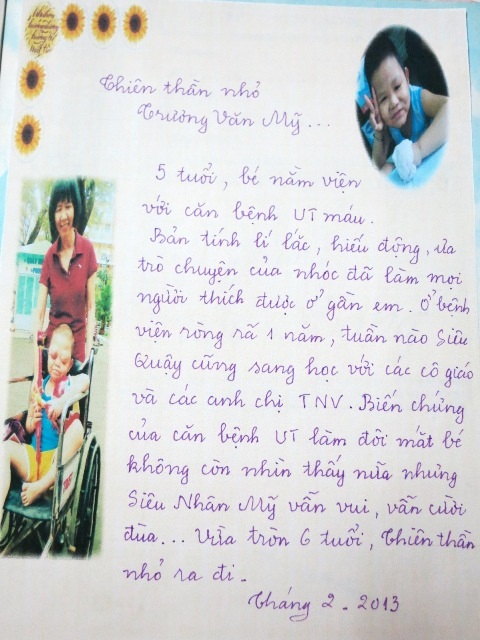 Thiên thần nhỏ
Trương Văn Mỹ...
5 tuổi, bé nằm viện
với căn bệnh UT máu.
Bản tính lí lắc, hiếu động, ưa
trò chuyện của nhóc đã làm mọi
người thích được ở gần em. Ở bệnh
viện ròng rã 1 năm, tuần nào Siêu
Quậy cũng sang học với các cô giáo
và các anh chị TNV. Biến chứng
của căn bệnh UT làm đôi mắt bé
không còn nhìn thấy nữa nhưng
Siêu Nhân Mỹ vẫn vui, vẫn cười
đùa... Vừa tròn 6 tuổi, Thiên thần
nhỏ ra đi.
Tháng 2. 2013